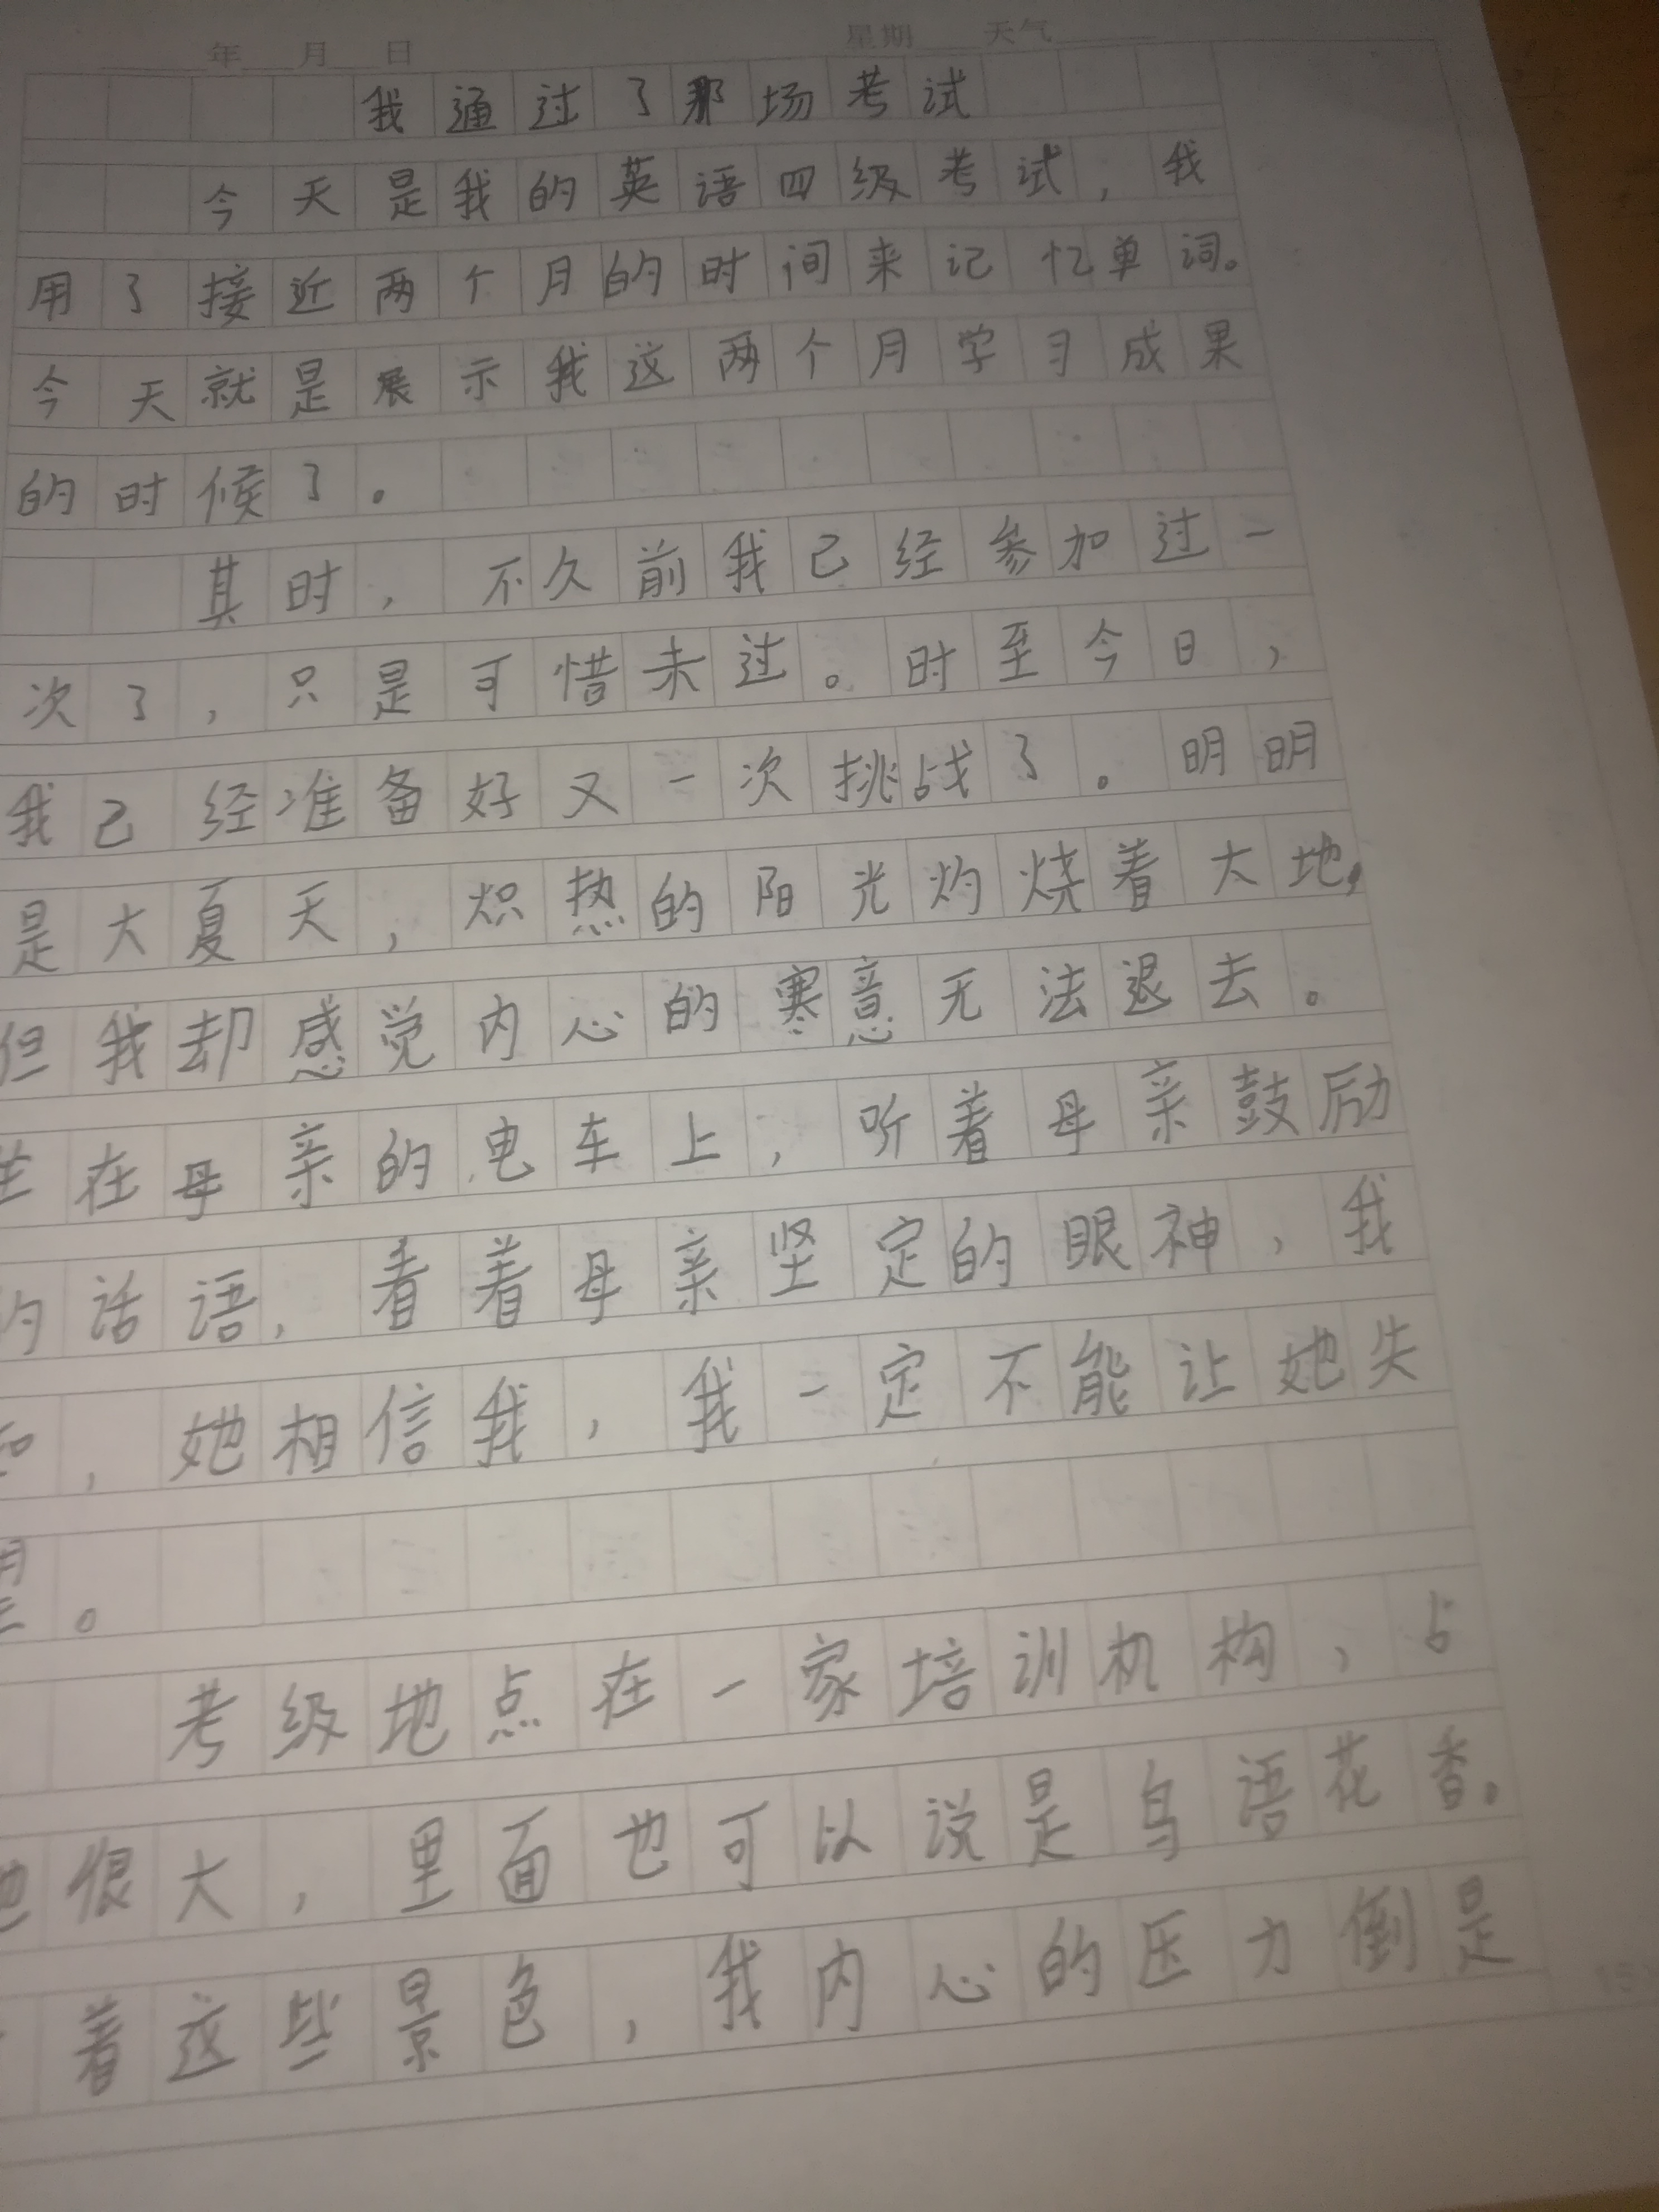 年 月 日 星期 天气
我通过了那场考试
今天是我的英语四级考试，我
用了接近两个月的时间来记忆单词。
今天就是展示我这两个月学习成果
的时候了。
其时，不久前我已经参加过一
次了，只是可惜未过。时至今日，
我己经准备好又一次挑战了。明明
是大夏天，炽热的阳光灼烧着大地，
但我却感觉内心的寒意无法退去。
坐在母亲的电车上，听着母亲鼓励
的话语，看着母亲坚定的眼神，我
，她相信我，我一定不能让她失
望。
考级地点在一家培训机构，占
地很大，里面也可以说是鸟语花香。
着这些景色，我内心的压力倒是